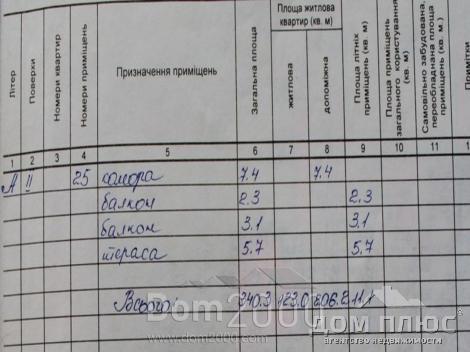 Літер
Поверки
Номери квартир
Номери приміщень
Призначення приміщень
Загальна площа
Площа житлова
квартир (кв. м)
житлова
допоміжна
Площа літніх
приміщень (кв. м)
Площа приміщень
загального користування
(кв. м)
Самовільно забудована,
переобладнана площа
приміщень (кв. м.)
Примітки
1 2 3 4 5 6 7 8 9 10 11 1
А ІІ 25 комора 7.4 7.4
балкон 2.3 2.3
балкон 3.1 3.1
тераса 5.7 5.7
Всього: 340.3 123.0 206.2 11.1
Dom2000
www.dom2000.com
ДОМ ПЛЮС
агентство недвижимости